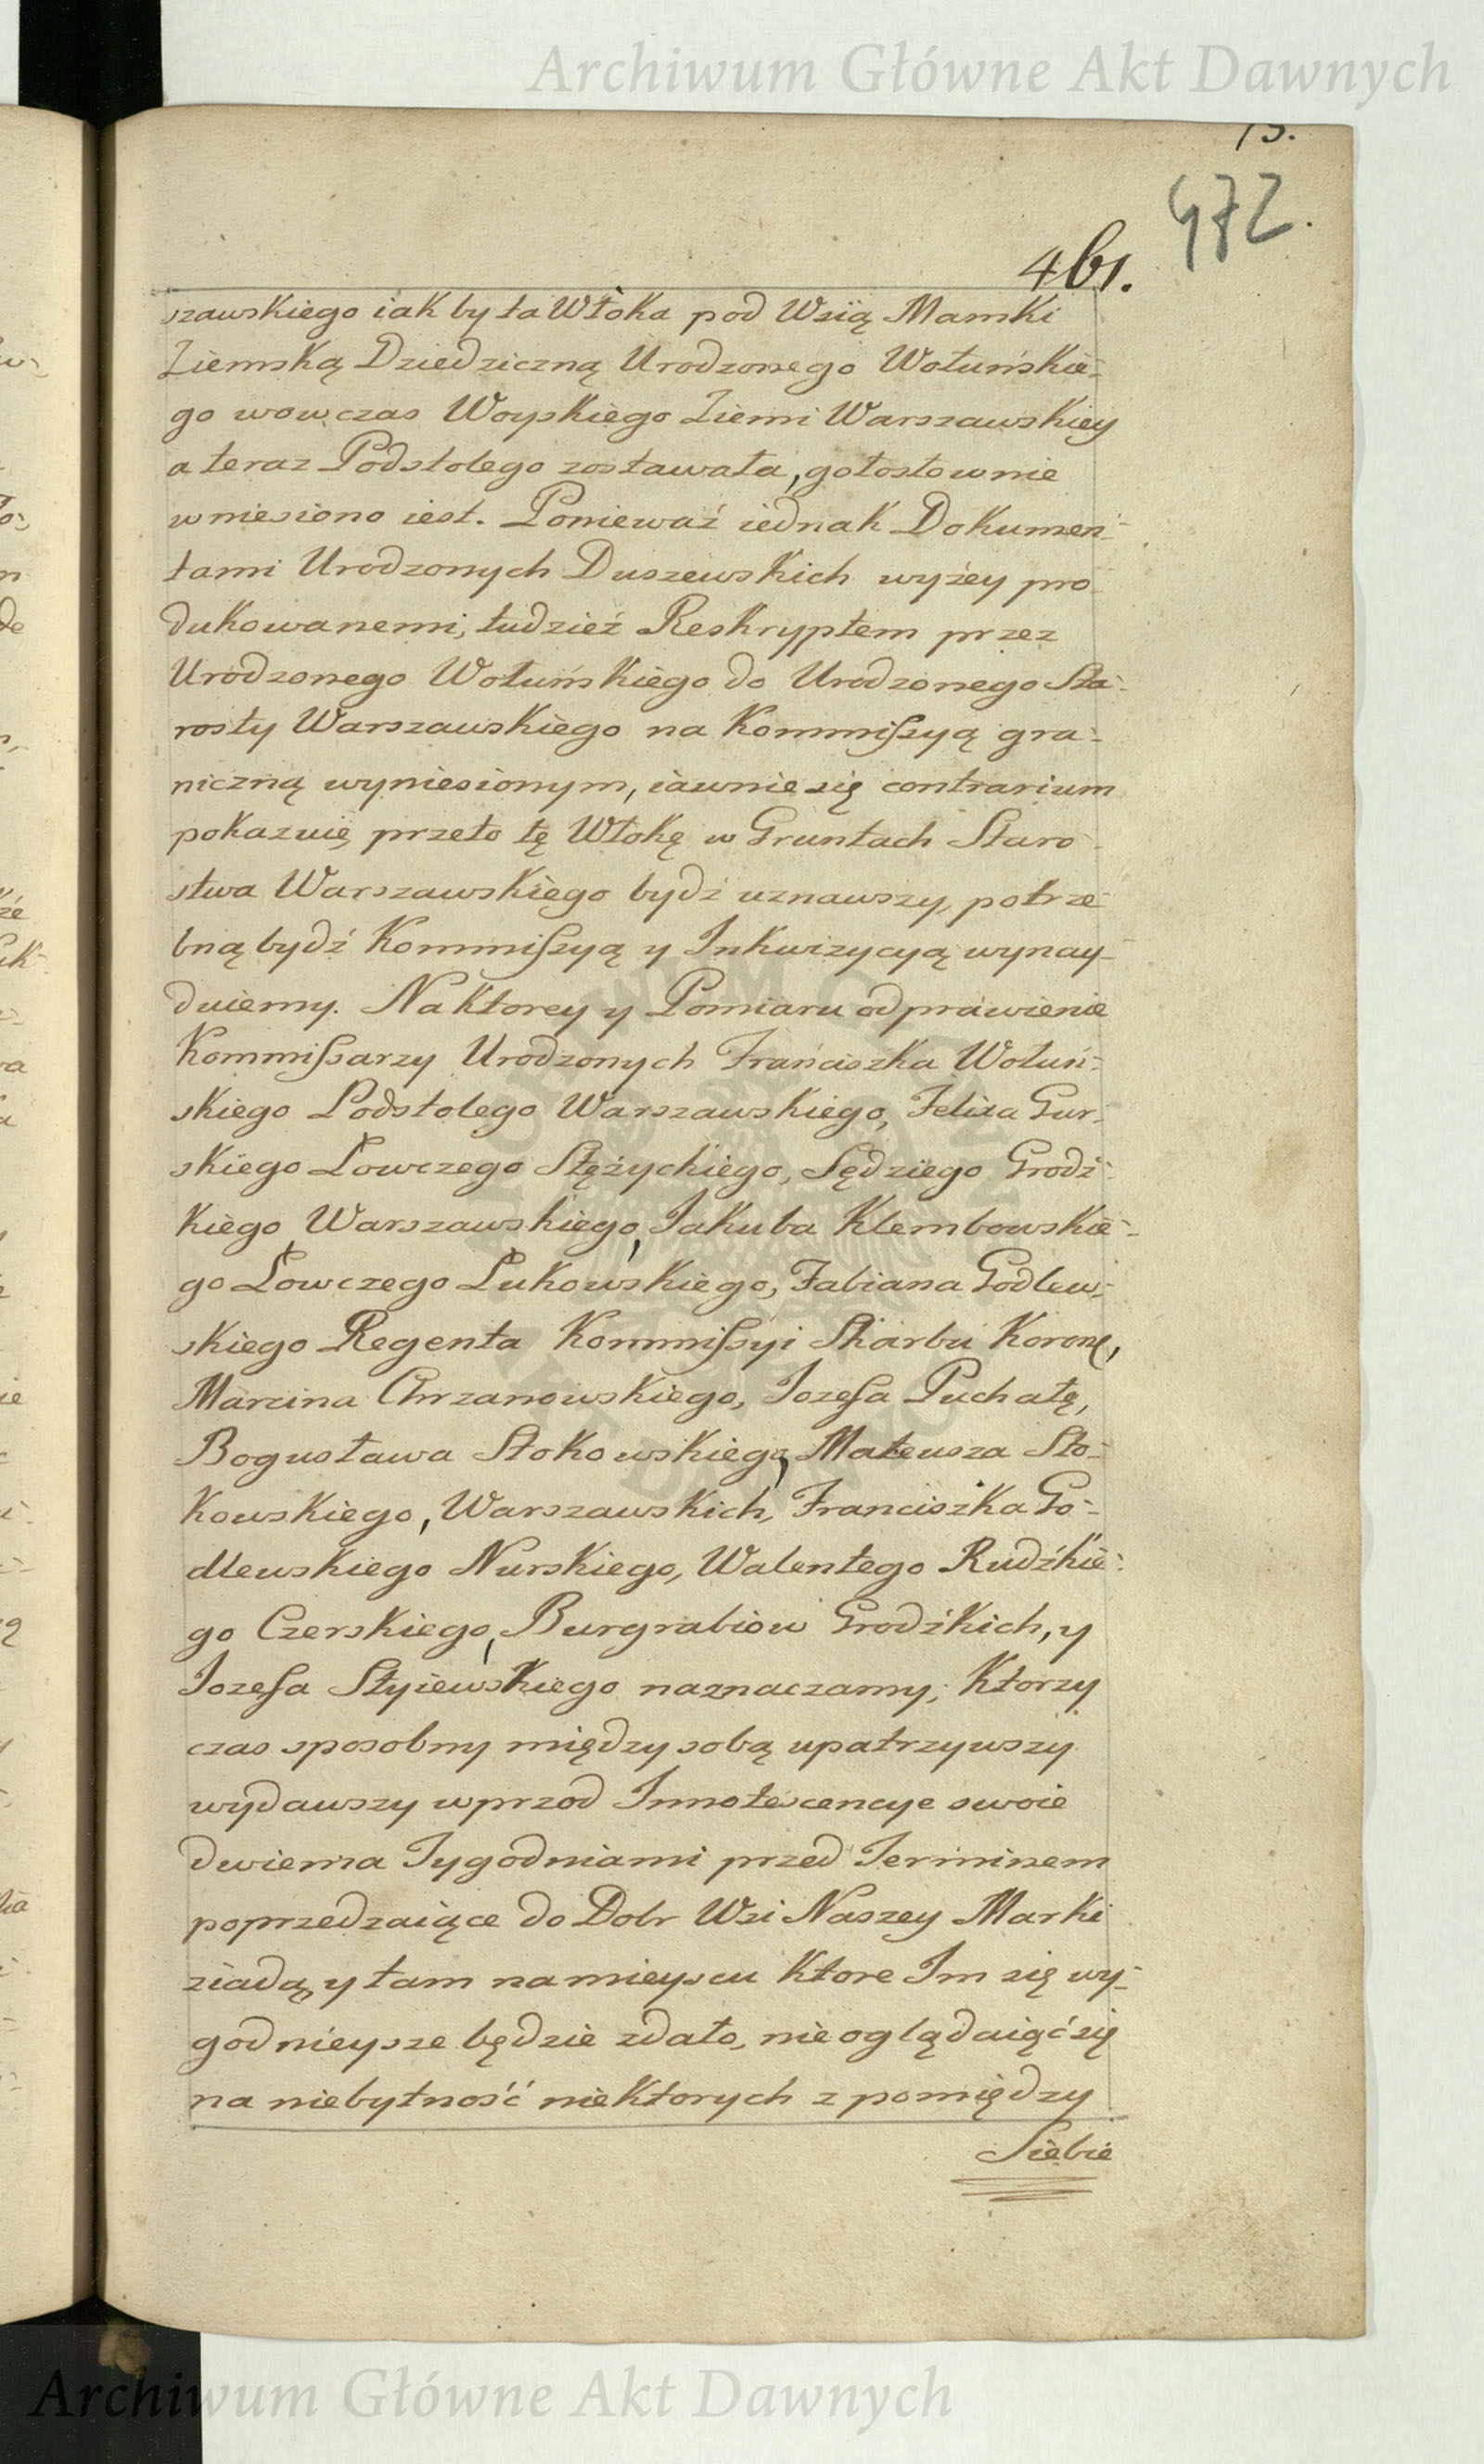 Archiwum Główne Akt Dawnych
472.
461.
szawskiego iak była Włoka pod Wsią Mamki
Ziemską Dziedziczną Urodzonego Wołuńskie-
go wowczas Woyskiego Ziemi Warszawskiey
a teraz Podstolego zostawała, gołosłownie
wniesiono iest. Ponieważ iednak Dokumen-
tami Urodzonych Duszewskich wyżey pro-
dukowanemi, tudzież Reskryptem przez
Urodzonego Wołuńskiego do Urodzonego Sta-
rosty Warszawskiego na Kommissyą gra-
niczną wyniesionym, iawnie się contrarium
pokazuię przeto tę Włokę w Gruntach Staro-
stwa Warszawskiego bydź uznawszy, potrze-
bną bydź Kommissyą y Inkwizycyą wynay-
duiemy. Na ktorey y Pomiaru odprawienie
Kommissarzy Urodzonych Franciszka Wołuń-
skiego Podstolego Warszawskiego, Felixa Gur-
skiego Łowczego Stężyckiego, Sędziego Grodz-
kiego Warszawskiego, Jakuba Klembowskie-
go Łowczego Łukowskiego, Fabiana Godlew-
skiego Regenta Kommissyi Skarbu Koronę,
Marcina Chrzanowskiego, Jozefa Puchałę,
Bogusława Stokowskiego, Mateusza Sto-
kowskiego, Warszawskich, Franciszka Go-
dlewskiego Nurskiego, Walentego Rudzkie-
go Czerskiego, Burgrabiow Grodzkich, y
Jozefa Styiewskiego naznaczamy; Ktorzy
czas sposobny między sobą upatrzywszy
wydawszy wprzod Innotescencye swoie
dwiema Tygodniami przed Terminem
poprzedzaiące do Dobr Wsi Naszey Marki
ziadą, y tam na mieyscu ktore Im się wy-
godnieysze będzie zdało, nie oglądaiąć się
na niebytność niektorych z pomiędzy
Siebie
Archiwum Główne Akt Dawnych